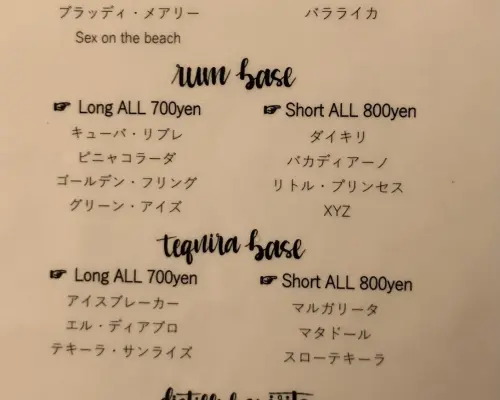 ブラッディ・メアリー
Sex on the beach
バラライカ
rum base
☞ Long ALL 700yen
キューバ・リブレ
ピニャコラーダ
ゴールデン・フリング
グリーン・アイズ
☞ Short ALL 800yen
ダイキリ
バカディアーノ
リトル・プリンセス
XYZ
tequira base
☞ Long ALL 700yen
アイスブレーカー
エル・ディアブロ
テキーラ・サンライズ
☞ Short ALL 800yen
マルガリータ
マタドール
スローテキーラ